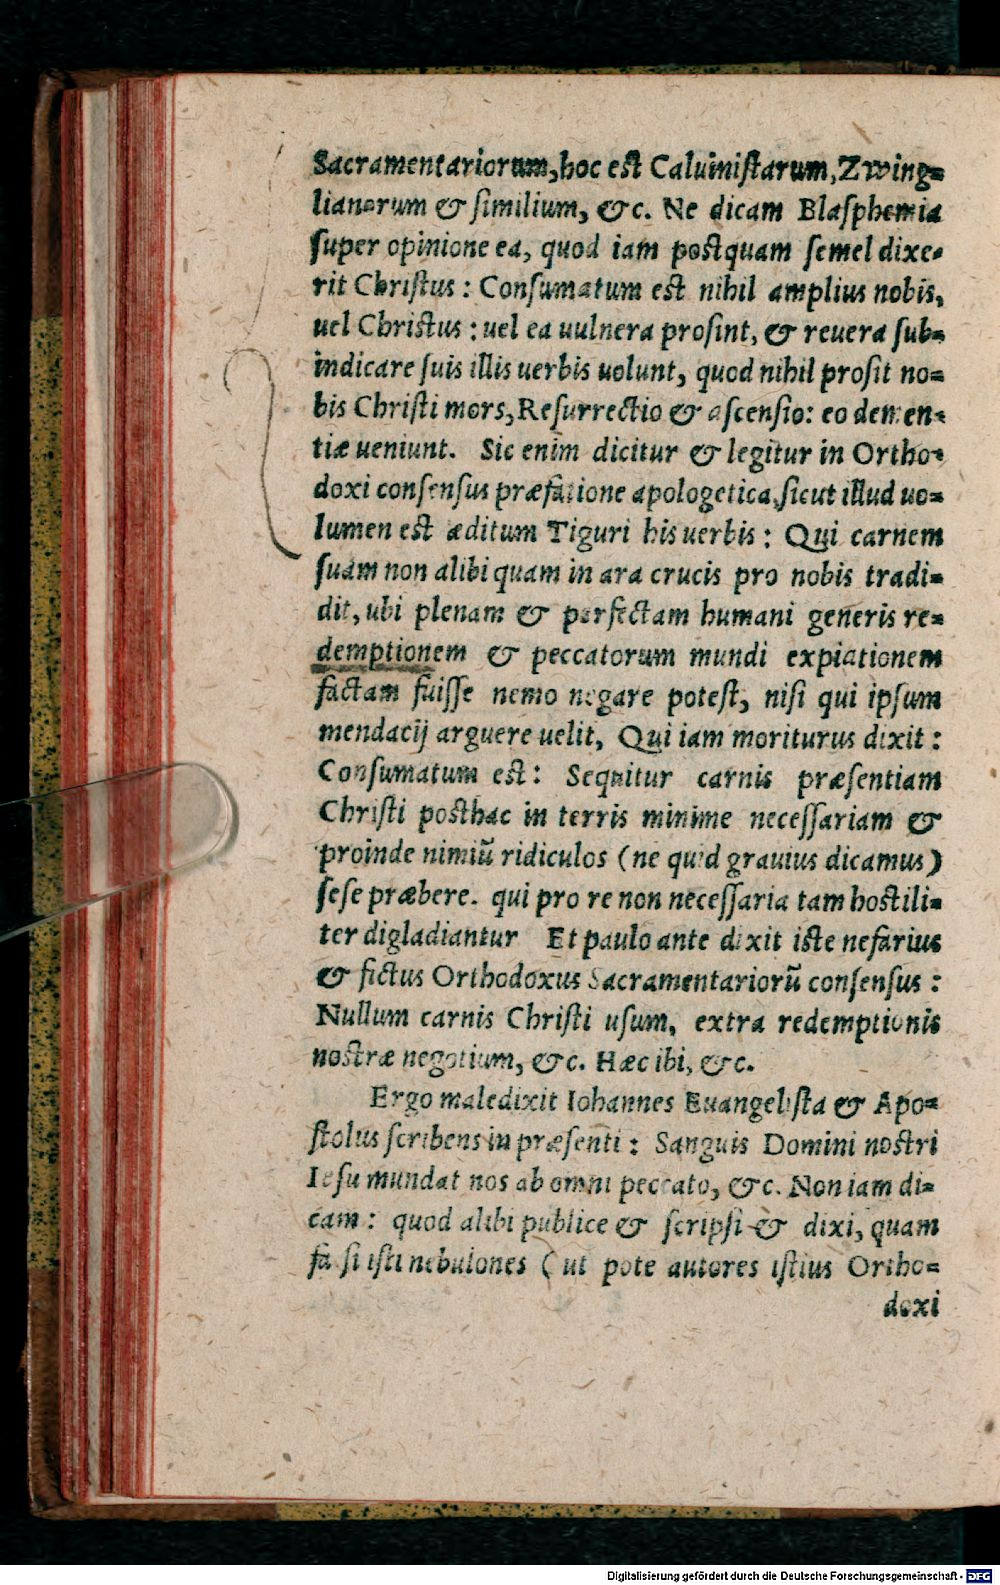 Sacramentariorum, hoc est Caluinistarum, Zwing=
lianorum & similium, &c. Ne dicam Blasphemia
super opinione ea, quod iam postquam semel dixe=
rit Christus: Consumatum est nihil amplius nobis,
uel Christus: uel ea uulnera prosint, & reuera sub=
indicare suis illis uerbis uolunt, quod nihil prosit no=
bis Christi mors, Resurrectio & ascensio: eo demen=
tiæ ueniunt. Sic enim dicitur & legitur in Ortho=
doxi consensus præfatione apologetica, sicut illud uo=
lumen est æditum Tiguri his uerbis: Qui carnem
suam non alibi quam in ara crucis pro nobis tradi=
dit, ubi plenam & perfectam humani generis re=
demptionem & peccatorum mundi expiationem
factam fuisse nemo negare potest, nisi qui ipsum
mendacij arguere uelit, Qui iam moriturus dixit:
Consumatum est: Sequitur carnis præsentiam
Christi posthac in terris minime necessariam &
proinde nimiũ ridiculos (ne quid grauius dicamus)
sese præbere. qui pro re non necessaria tam hostili=
ter digladiantur Et paulo ante dixit iste nefarius
& fictus Orthodoxus Sacramentariorũ consensus:
Nullum carnis Christi usum, extra redemptionis
nostræ negotium, &c. Hæc ibi, &c.
Ergo maledixit Iohannes Euangelista & Apo=
stolus scribens in præsenti: Sanguis Domini nostri
Iesu mundat nos ab omni peccato, &c. Non iam di=
cam: quod alibi publice & scripsi & dixi, quam
falsi isti nebulones (ut pote autores istius Ortho=
doxi
Digitalisierung gefördert durch die Deutsche Forschungsgemeinschaft - DFG